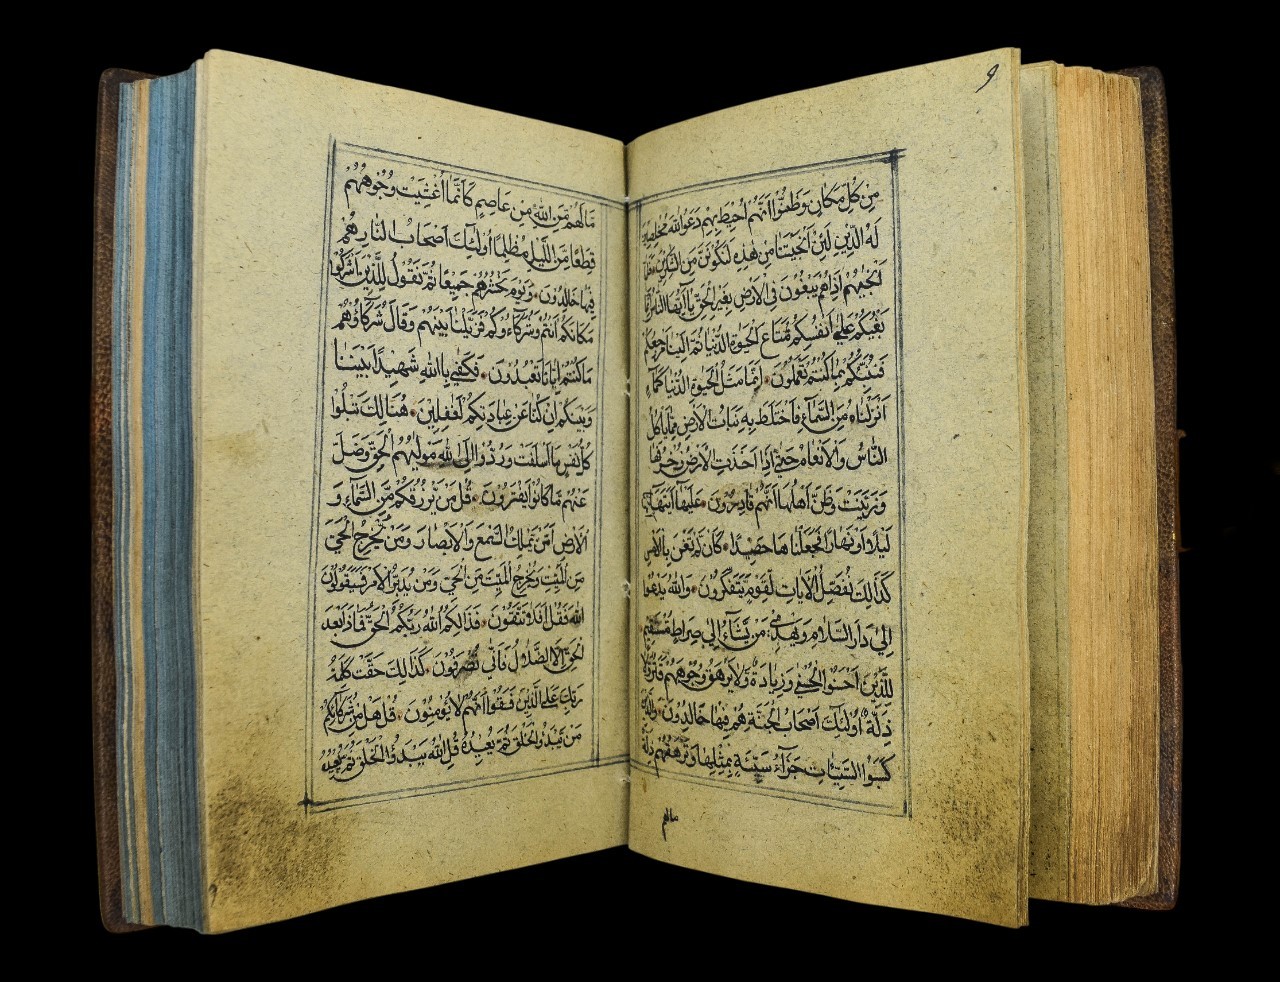 9
مِنْ كُلِّ مَكَانٍ وَظَنُّوا اَنَّهُمْ اُحِيطَ بِهِمْ دَعَوُا اللّٰهَ مُخْلِصِينَ
لَهُ الدِّينَ لَئِنْ اَنْجَيْتَنَا مِنْ هٰذِهِ لَنَكُونَنَّ مِنَ الشَّاكِرِينَ فَلَمَّا
اَنْجٰيهُمْ اِذَا هُمْ يَبْغُونَ فِى الْاَرْضِ بِغَيْرِ الْحَقِّ يَا اَيُّهَا النَّاسُ اِنَّمَا
بَغْيُكُمْ عَلٰى اَنْفُسِكُمْ مَتَاعَ الْحَيٰوةِ الدُّنْيَا ثُمَّ اِلَيْنَا مَرْجِعُكُمْ
فَنُنَبِّئُكُمْ بِمَا كُنْتُمْ تَعْمَلُونَ اِنَّمَا مَثَلُ الْحَيٰوةِ الدُّنْيَا كَمَآءٍ
اَنْزَلْنَاهُ مِنَ السَّمَآءِ فَاخْتَلَطَ بِهِ نَبَاتُ الْاَرْضِ مِمَّا يَاْكُلُ
النَّاسُ وَالْاَنْعَامُ حَتّٰى اِذَا اَخَذَتِ الْاَرْضُ زُخْرُفَهَا
وَازَّيَّنَتْ وَظَنَّ اَهْلُهَا اَنَّهُمْ قَادِرُونَ عَلَيْهَا اَتٰيهَا
لَيْلًا اَوْ نَهَارًا فَجَعَلْنَاهَا حَصِيدًا كَاَنْ لَمْ تَغْنَ بِالْاَمْسِ
كَذَالِكَ نُفَصِّلُ الْاٰيَاتِ لِقَوْمٍ يَتَفَكَّرُونَ وَاللّٰهُ يَدْعُوا
اِلٰى دَارِ السَّلَامِ وَيَهْدِى مَنْ يَشَآءُ اِلٰى صِرَاطٍ مُسْتَقِيمٍ
لِلَّذِينَ اَحْسَنُوا الْحُسْنٰى وَزِيَادَةٌ وَلَا يَرْهَقُ وُجُوهَهُمْ قَتَرٌ وَلَا
ذِلَّةٌ اُولٰئِكَ اَصْحَابُ الْجَنَّةِ هُمْ فِيهَا خَالِدُونَ وَالَّذِينَ
كَسَبُوا السَّيِّئَاتِ جَزَآءُ سَيِّئَةٍ بِمِثْلِهَا وَتَرْهَقُهُمْ ذِلَّةٌ
مالهم
مَا لَهُمْ مِنَ اللّٰهِ مِنْ عَاصِمٍ كَاَنَّمَا اُغْشِيَتْ وُجُوهُهُمْ
قِطَعًا مِنَ اللَّيْلِ مُظْلِمًا اُولٰئِكَ اَصْحَابُ النَّارِ هُمْ
فِيهَا خَالِدُونَ وَيَوْمَ نَحْشُرُهُمْ جَمِيعًا ثُمَّ نَقُولُ لِلَّذِينَ اَشْرَكُوا
مَكَانَكُمْ اَنْتُمْ وَشُرَكَاؤُكُمْ فَزَيَّلْنَا بَيْنَهُمْ وَقَالَ شُرَكَاؤُهُمْ
مَا كُنْتُمْ اِيَّانَا تَعْبُدُونَ فَكَفٰى بِاللّٰهِ شَهِيدًا بَيْنَنَا
وَبَيْنَكُمْ اِنْ كُنَّا عَنْ عِبَادَتِكُمْ لَغَافِلِينَ هُنَالِكَ تَبْلُوا
كُلُّ نَفْسٍ مَا اَسْلَفَتْ وَرُدُّوا اِلَى اللّٰهِ مَوْلٰيهُمُ الْحَقِّ وَضَلَّ
عَنْهُمْ مَا كَانُوا يَفْتَرُونَ قُلْ مَنْ يَرْزُقُكُمْ مِنَ السَّمَآءِ وَ
الْاَرْضِ اَمَّنْ يَمْلِكُ السَّمْعَ وَالْاَبْصَارَ وَمَنْ يُخْرِجُ الْحَيَّ
مِنَ الْمَيِّتِ وَيُخْرِجُ الْمَيِّتَ مِنَ الْحَيِّ وَمَنْ يُدَبِّرُ الْاَمْرَ فَسَيَقُولُونَ
اللّٰهُ فَقُلْ اَفَلَا تَتَّقُونَ فَذَالِكُمُ اللّٰهُ رَبُّكُمُ الْحَقُّ فَمَاذَا بَعْدَ
الْحَقِّ اِلَّا الضَّلَالُ فَاَنّٰى تُصْرَفُونَ كَذَالِكَ حَقَّتْ كَلِمَةُ
رَبِّكَ عَلَى الَّذِينَ فَسَقُوا اَنَّهُمْ لَا يُؤْمِنُونَ قُلْ هَلْ مِنْ شُرَكَآئِكُمْ
مَنْ يَبْدَؤُا الْخَلْقَ ثُمَّ يُعِيدُهُ قُلِ اللّٰهُ يَبْدَؤُا الْخَلْقَ ثُمَّ يُعِيدُهُ